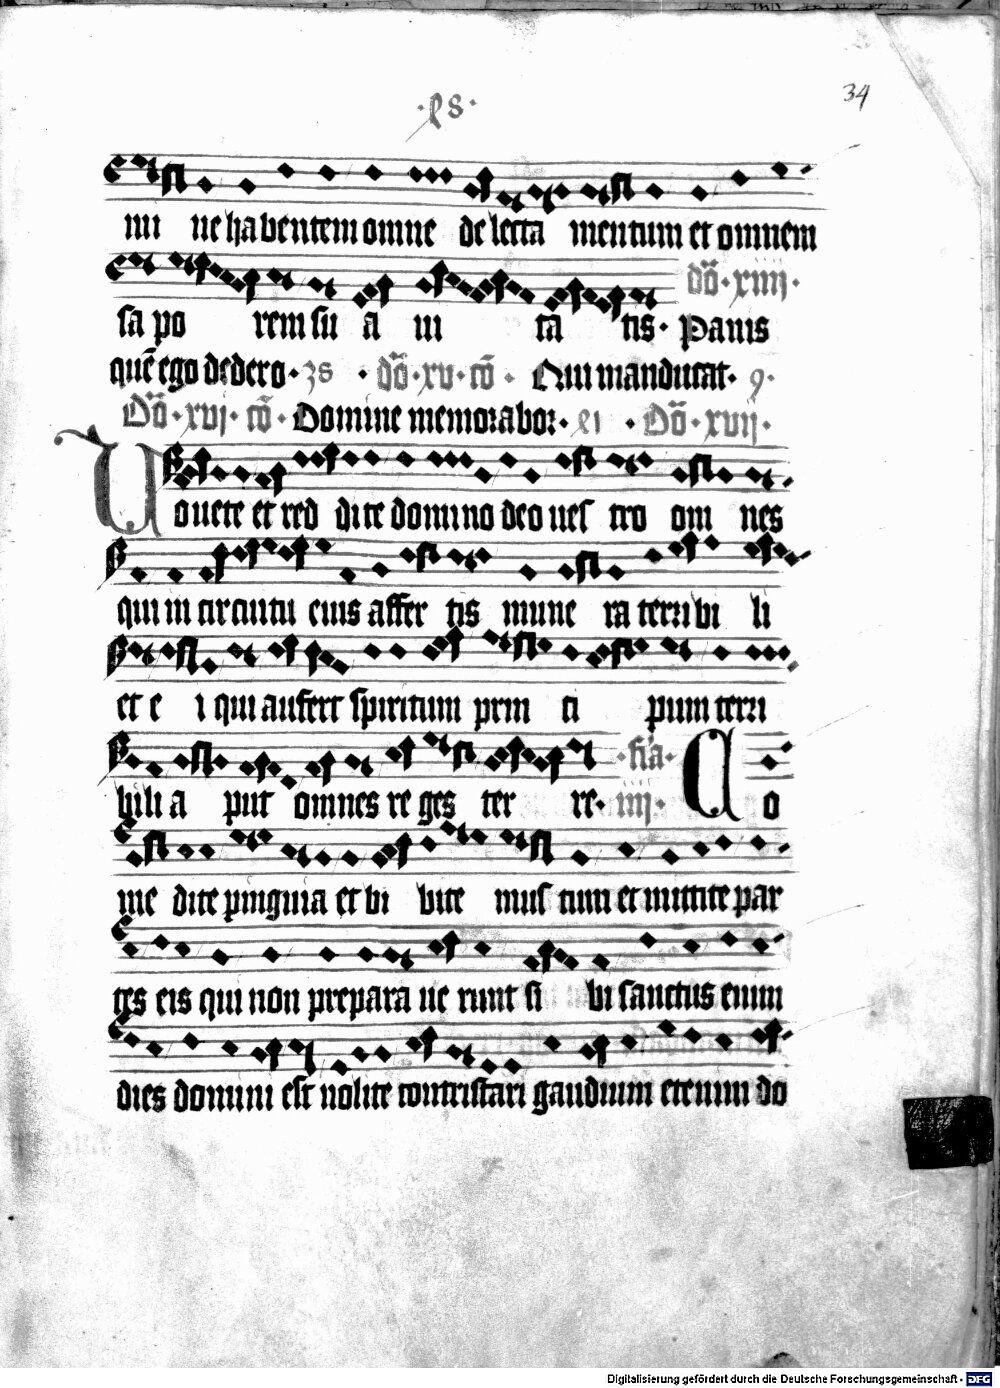 ·l8·
34
mi ne habentem omne delecta mentum et omnem
sa po rem su a ui ta tis· Panis dō·xiiij·
quē ego dedero· 38 · dō·xv·cō· Qui manducat· 9·
Dō·xvj·cō· Domine memorabor· li · Dō·xvij·
Vouete et red dite domino deo ues tro om nes
qui in circuitu eius affer tis mune ra terri bi li
et e i qui aufert spiritum prin ci pum terri
bili a put omnes re ges ter re· ·fīa· iiij· Co
me dite pinguia et bi bite mus tum et mittite par
tes eis qui non prepara ue runt si bi sanctus enim
dies domini est nolite contristari gaudium etenim do
Digitalisierung gefördert durch die Deutsche Forschungsgemeinschaft - DFG